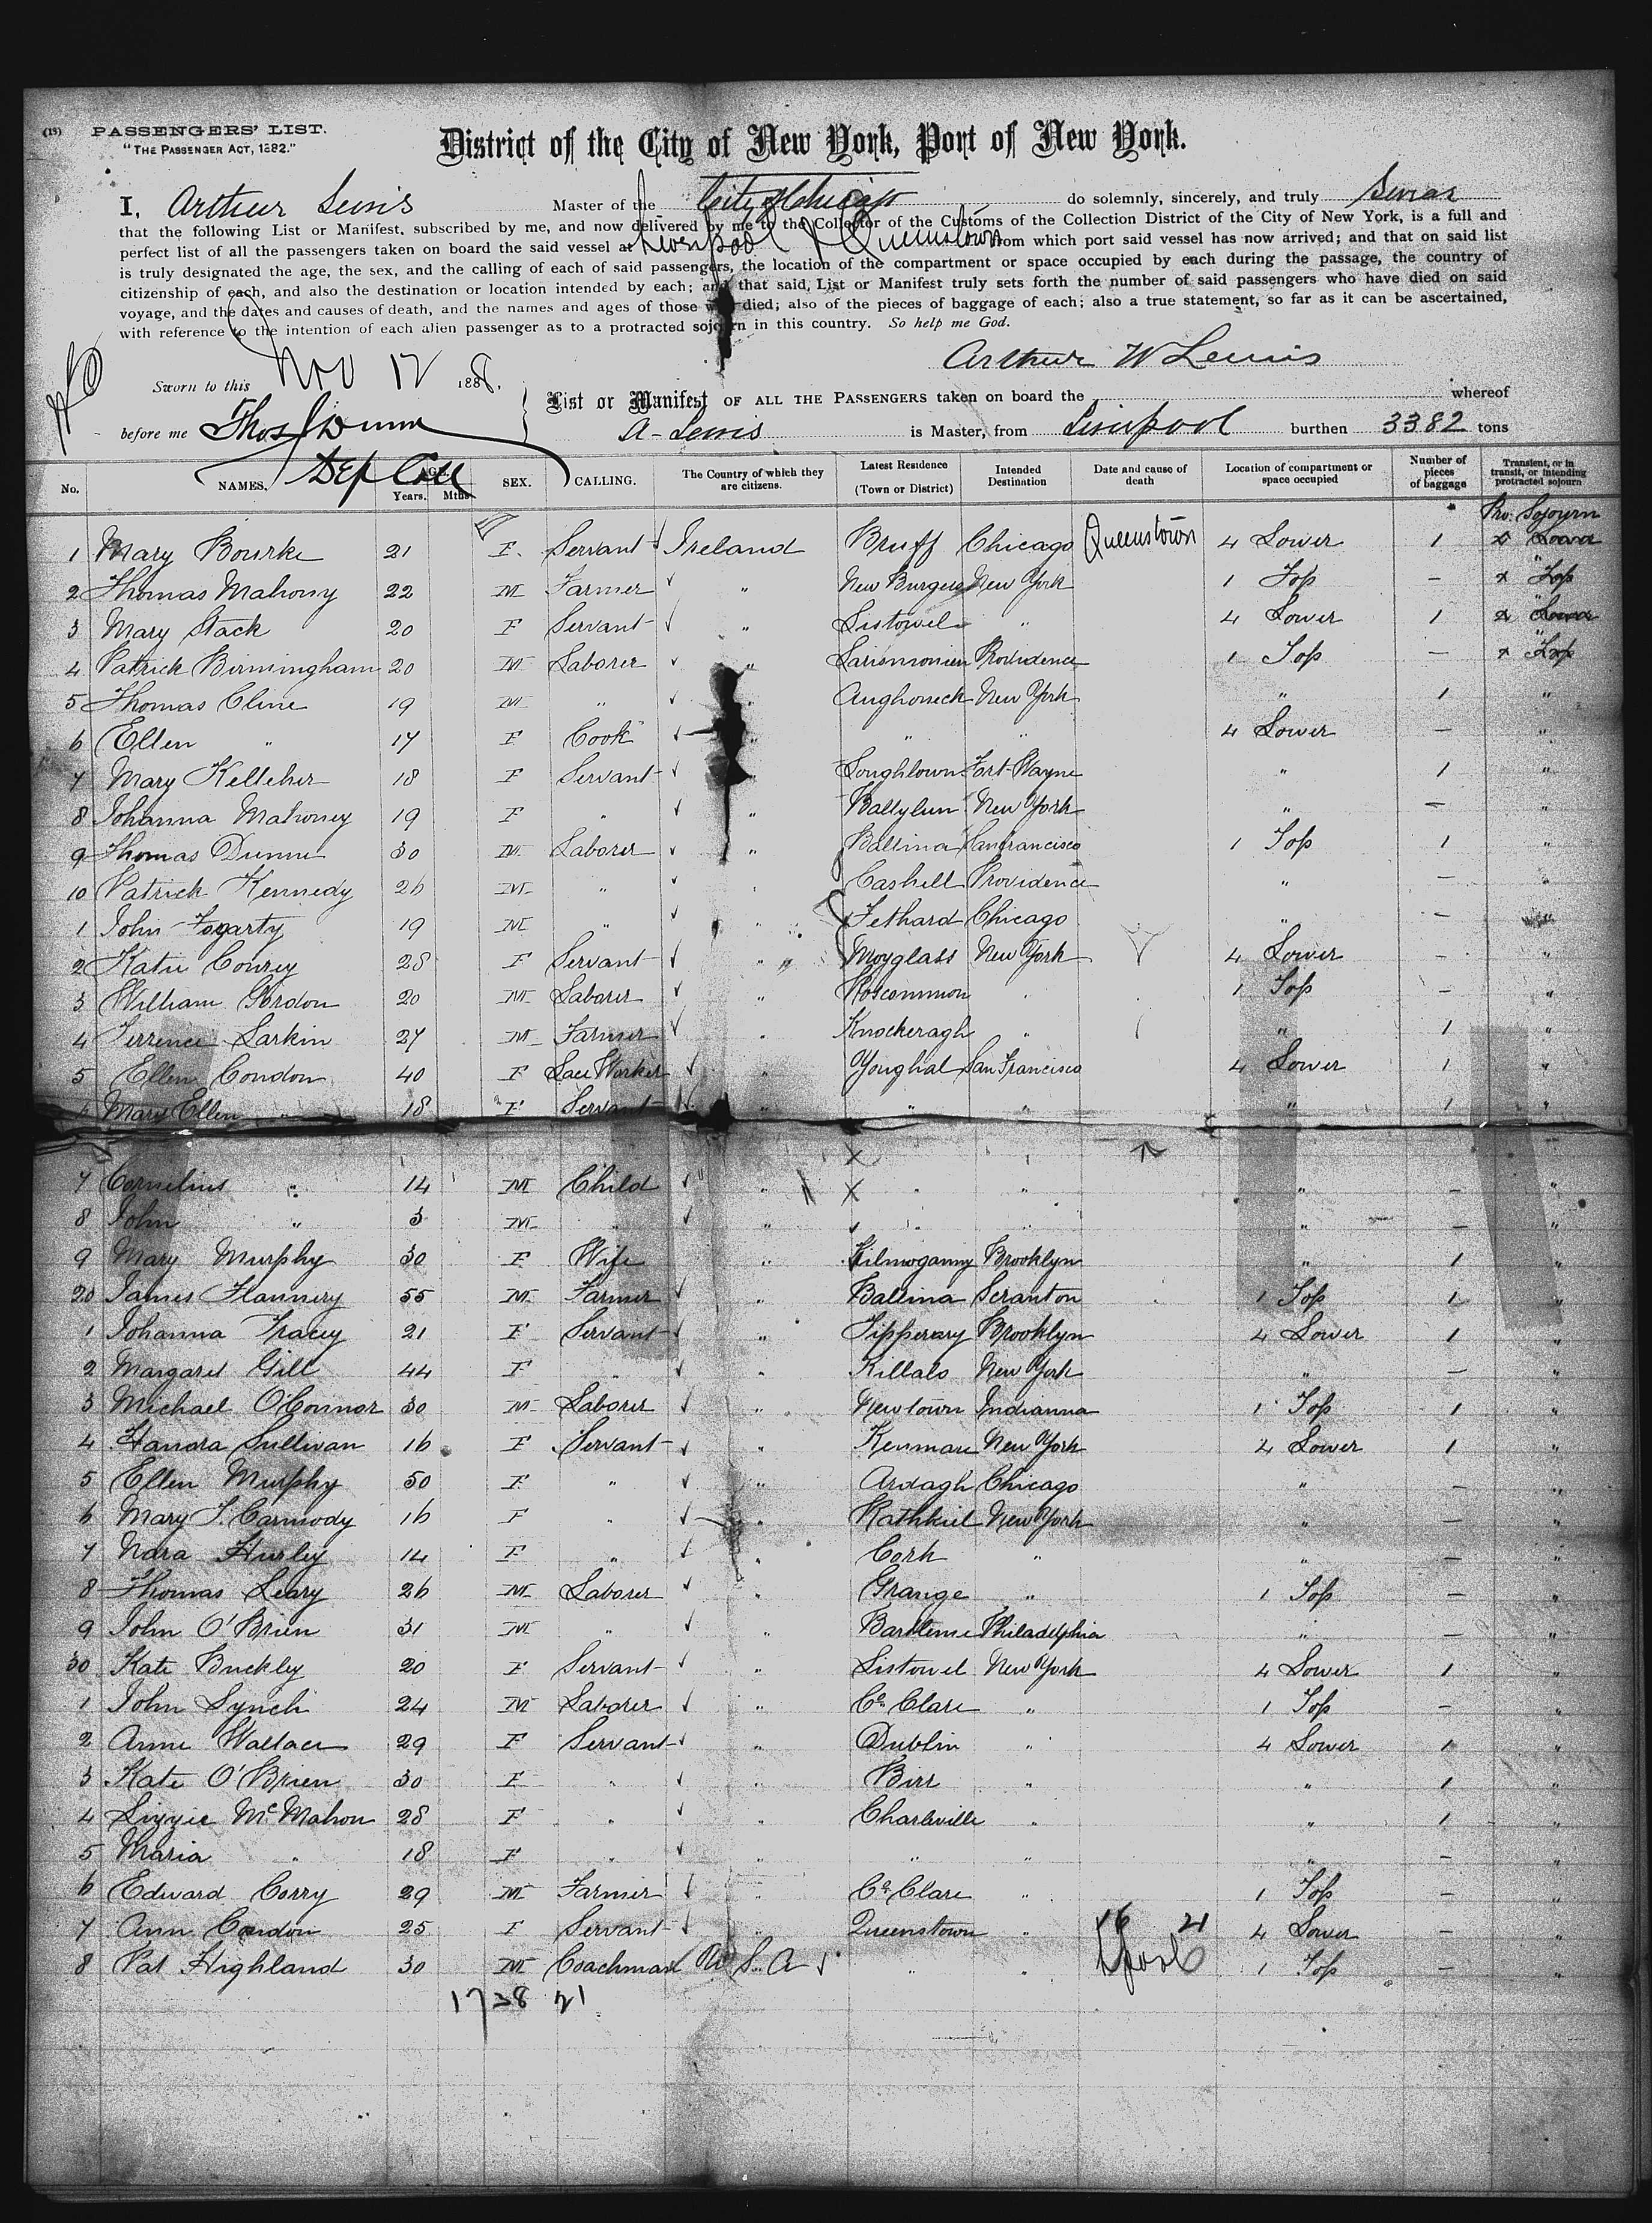 (15) PASSENGERS' LIST.
"THE PASSENGER ACT, 1882."
District of the City of New York, Port of New York.
I, Arthur Lewis Master of the City of Chicago do solemnly, sincerely, and truly swear
that the following List or Manifest, subscribed by me, and now delivered by me to the Collector of the Customs of the Collection District of the City of New York, is a full and
perfect list of all the passengers taken on board the said vessel at Liverpool & Queenstown from which port said vessel has now arrived; and that on said list
is truly designated the age, the sex, and the calling of each of said passengers, the location of the compartment or space occupied by each during the passage, the country of
citizenship of each, and also the destination or location intended by each; and that said List or Manifest truly sets forth the number of said passengers who have died on said
voyage, and the dates and causes of death, and the names and ages of those who died; also of the pieces of baggage of each; also a true statement, so far as it can be ascertained,
with reference to the intention of each alien passenger as to a protracted sojourn in this country. So help me God.
Arthur W Lewis
Sworn to this Nov 17 1888.
List or Manifest OF ALL THE PASSENGERS taken on board the whereof
before me Thos J Dunn A-Lewis is Master, from Liverpool burthen 3382 tons
Dep Coll
No. NAMES. AGE. Years. Mths. SEX. CALLING. The Country of which they are citizens. Latest Residence (Town or District) Intended Destination Date and cause of death Location of compartment or space occupied Number of pieces of baggage Transient, or in transit, or intending protracted sojourn
Pro: Sojourn
1 Mary Bourke 21 F. Servant Ireland Bruff Chicago Queenstown 4 Lower 1 Lower
2 Thomas Mahony 22 M Farmer " New York 1 Top – Top
3 Mary Stack 20 F Servant " Listowel " 4 Lower 1 Lower
4 Patrick Birmingham 20 M Laborer " Providence 1 Top – Top
5 Thomas Cline 19 M " " Aughoneck New York " 1 "
6 Ellen " 17 F Cook " " " 4 Lower – "
7 Mary Kelleher 18 F Servant " Loughtown Fort Wayne " 1 "
8 Johanna Mahoney 19 F " " Ballylun New York " – "
9 Thomas Dunne 30 M Laborer " Ballina San francisco 1 Top 1 "
10 Patrick Kennedy 26 M " " Cashell Providence " – "
1 John Fogarty 19 M " " Fethard Chicago " – "
2 Katie Conrey 28 F Servant " Moyglass New York 4 Lower – "
3 William Gordon 20 M Laborer " Roscommon " 1 Top – "
4 Terrence Larkin 27 M Farmer " Knockeragh " " 1 "
5 Ellen Condon 40 F Lace Worker " Youghal San Francisco 4 Lower 1 "
6 Mary Ellen " 18 F Servant " " " " 1 "
7 Cornelius " 14 M Child " " " " – "
8 John " 3 M " " " " " – "
9 Mary Murphy 30 F Wife " Kilmoganny Brooklyn " 1 "
20 James Flannery 55 M Farmer " Ballina Scranton 1 Top 1 "
1 Johanna Tracey 21 F Servant " Tipperary Brooklyn 4 Lower 1 "
2 Margaret Gill 44 F " " Killalo New York " – "
3 Michael O'Connor 30 M Laborer " Newtown Indianna 1 Top 1 "
4 Hanora Sullivan 16 F Servant " Kenmare New York 4 Lower 1 "
5 Ellen Murphy 50 F " " Ardagh Chicago " – "
6 Mary J. Carmody 16 F " " Rathkiel New York " – "
7 Nora Hurley 14 F " " Cork " " – "
8 Thomas Leary 26 M Laborer " Grange " 1 Top – "
9 John O'Brien 31 M " " Philadelphia " – "
30 Kate Buckley 20 F Servant " Listowel New York 4 Lower 1 "
1 John Lynch 24 M Laborer " Co. Clare " 1 Top – "
2 Anne Wallace 29 F Servant " Dublin " 4 Lower 1 "
3 Kate O'Brien 30 F " " Birr " " 1 "
4 Lizzie McMahon 28 F " " Charleville " " 1 "
5 Maria " 18 F " " " " " – "
6 Edward Corry 29 M Farmer " Co. Clare " 1 Top – "
7 Ann Condon 25 F Servant " Queenstown " 16 21 4 Lower – "
8 Pat Highland 30 M Coachman U.S.A " " L'pool 1 Top – "
17 38 21